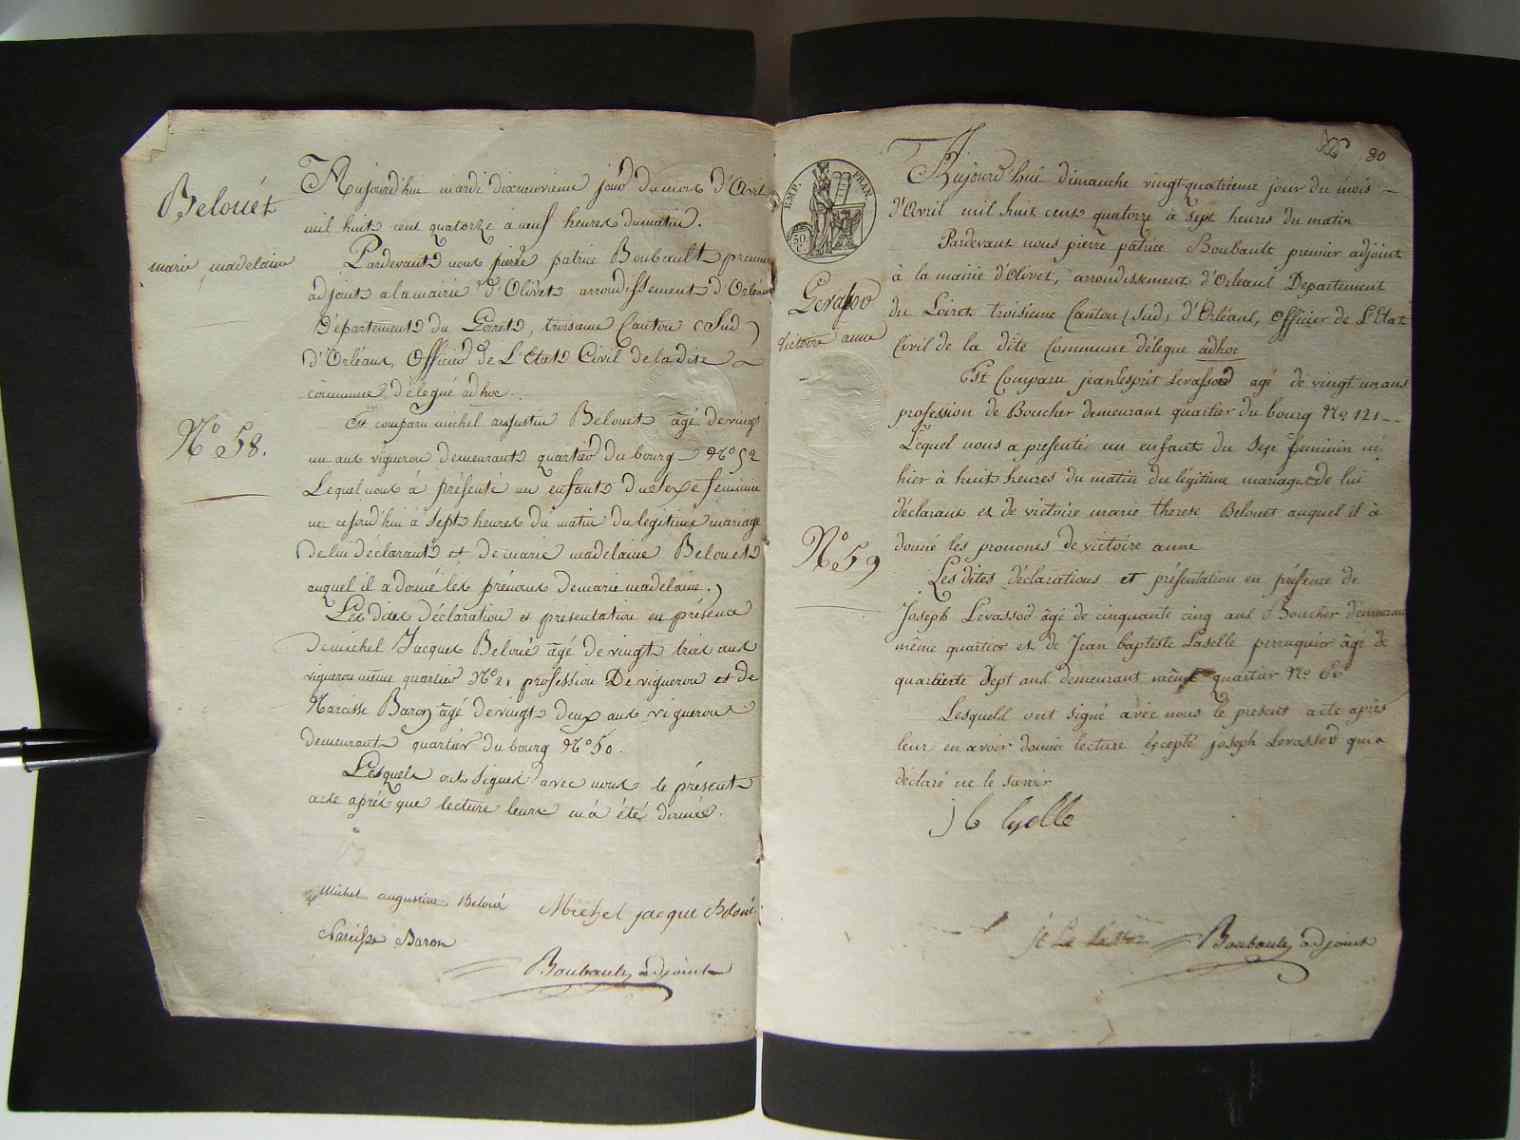 Belouét
marie madelaine
N° 58.
Aujourd'hui mardi dixneuvieme jour du mois d'Avril
mil huit cent quatorze à neuf heures du matin.
Pardevant nous pierre patrice Boubault premier
adjoint a la mairie d'Olivet arrondissement d'Orléans
Département du Loiret, troisieme Canton (Sud)
d'Orléans, Officier de L'Etat Civil de la dite
commune délegué adhoc.
Est comparu michel augustin Belouet âgé de vingt
un ans vigneron demeurant quartier du bourg N° 52
Lequel nous à présenté un enfant du sexe feminin
né cejourd'hui à sept heures du matin du légitime mariage
de lui déclarant et de marie madelaine Belouet
auquel il a donné les prénoms de marie madelaine.
Les dites déclaration et presentation en présence
de michel Jacques Beloué âgé de vingt trois ans
vigneron même quartier N° 21 profession De vigneron et de
Narcisse Baron âgé de vingt deux ans vigneron
demeurant quartier du bourg N° 50.
Lesquels ont signés avec nous le présent
acte aprés que lecture leurs en à été donné.
Michel augustin Beloué Michel jacque Beloué
Narcisse Baron
Boubault adjoint
80
EMP. FRAN.
50
Levassor
victoire anne
N° 59
Aujourd'hui dimanche vingt quatrieme jour du mois
d'Avril mil huit cent quatorze à sept heures du matin
Pardevant nous pierre patrice Boubault premier adjoint
à la mairie d'Olivet, arrondissement d'Orleans Departement
du Loiret troisieme Canton (Sud) d'Orléans, Officier de L'Etat
Civil de la dite Commune délegué adhoc
Est Comparu jean lesprit Levassor agé de vingt un ans
profession de Boucher demeurant quartier du bourg N° 121
Lequel nous a presenté un enfant du sexe feminin né
hier à huit heures du matin du légitime mariage de lui
déclarant et de victoire marie therese Belouet auquel il à
donné les prenoms de victoire anne
Les dites déclarations et présentation en présence de
Joseph Levassor âgé de cinquante cinq ans Boucher demeurant
même quartier et de Jean baptiste Laselle perruquier âgé de
quarante Sept ans demeurant même quartier N°
Lesquels ont signé avec nous le present acte aprés
leur en avoir donné lecture Excepté joseph Levassor qui a
déclaré ne le savoir
Boubault adjoint